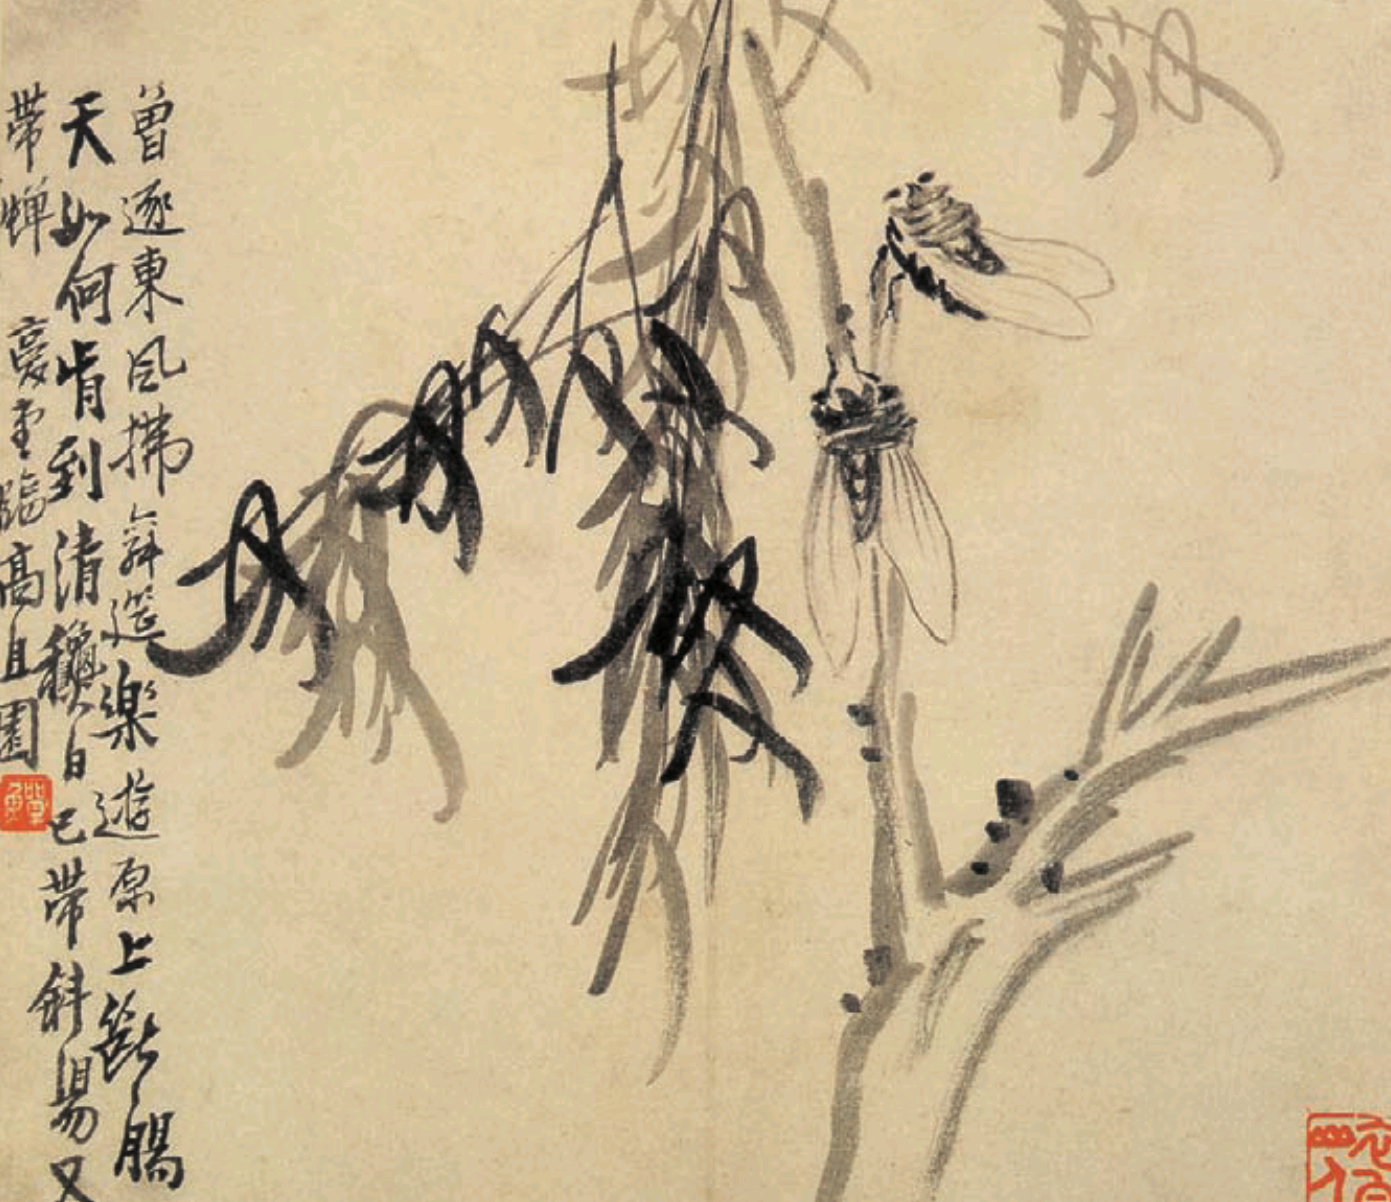 曾逐東風拂舞筵樂遊原上斷腸
天如何肯到清龝日已帶斜陽又
帶蟬 复堂臨高且園
鱓